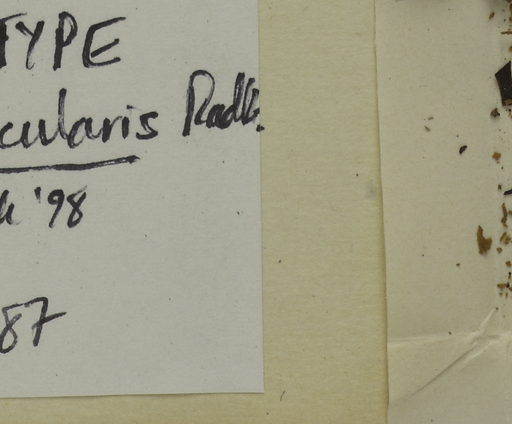 TYPE
cularis Radlk.
'98
87